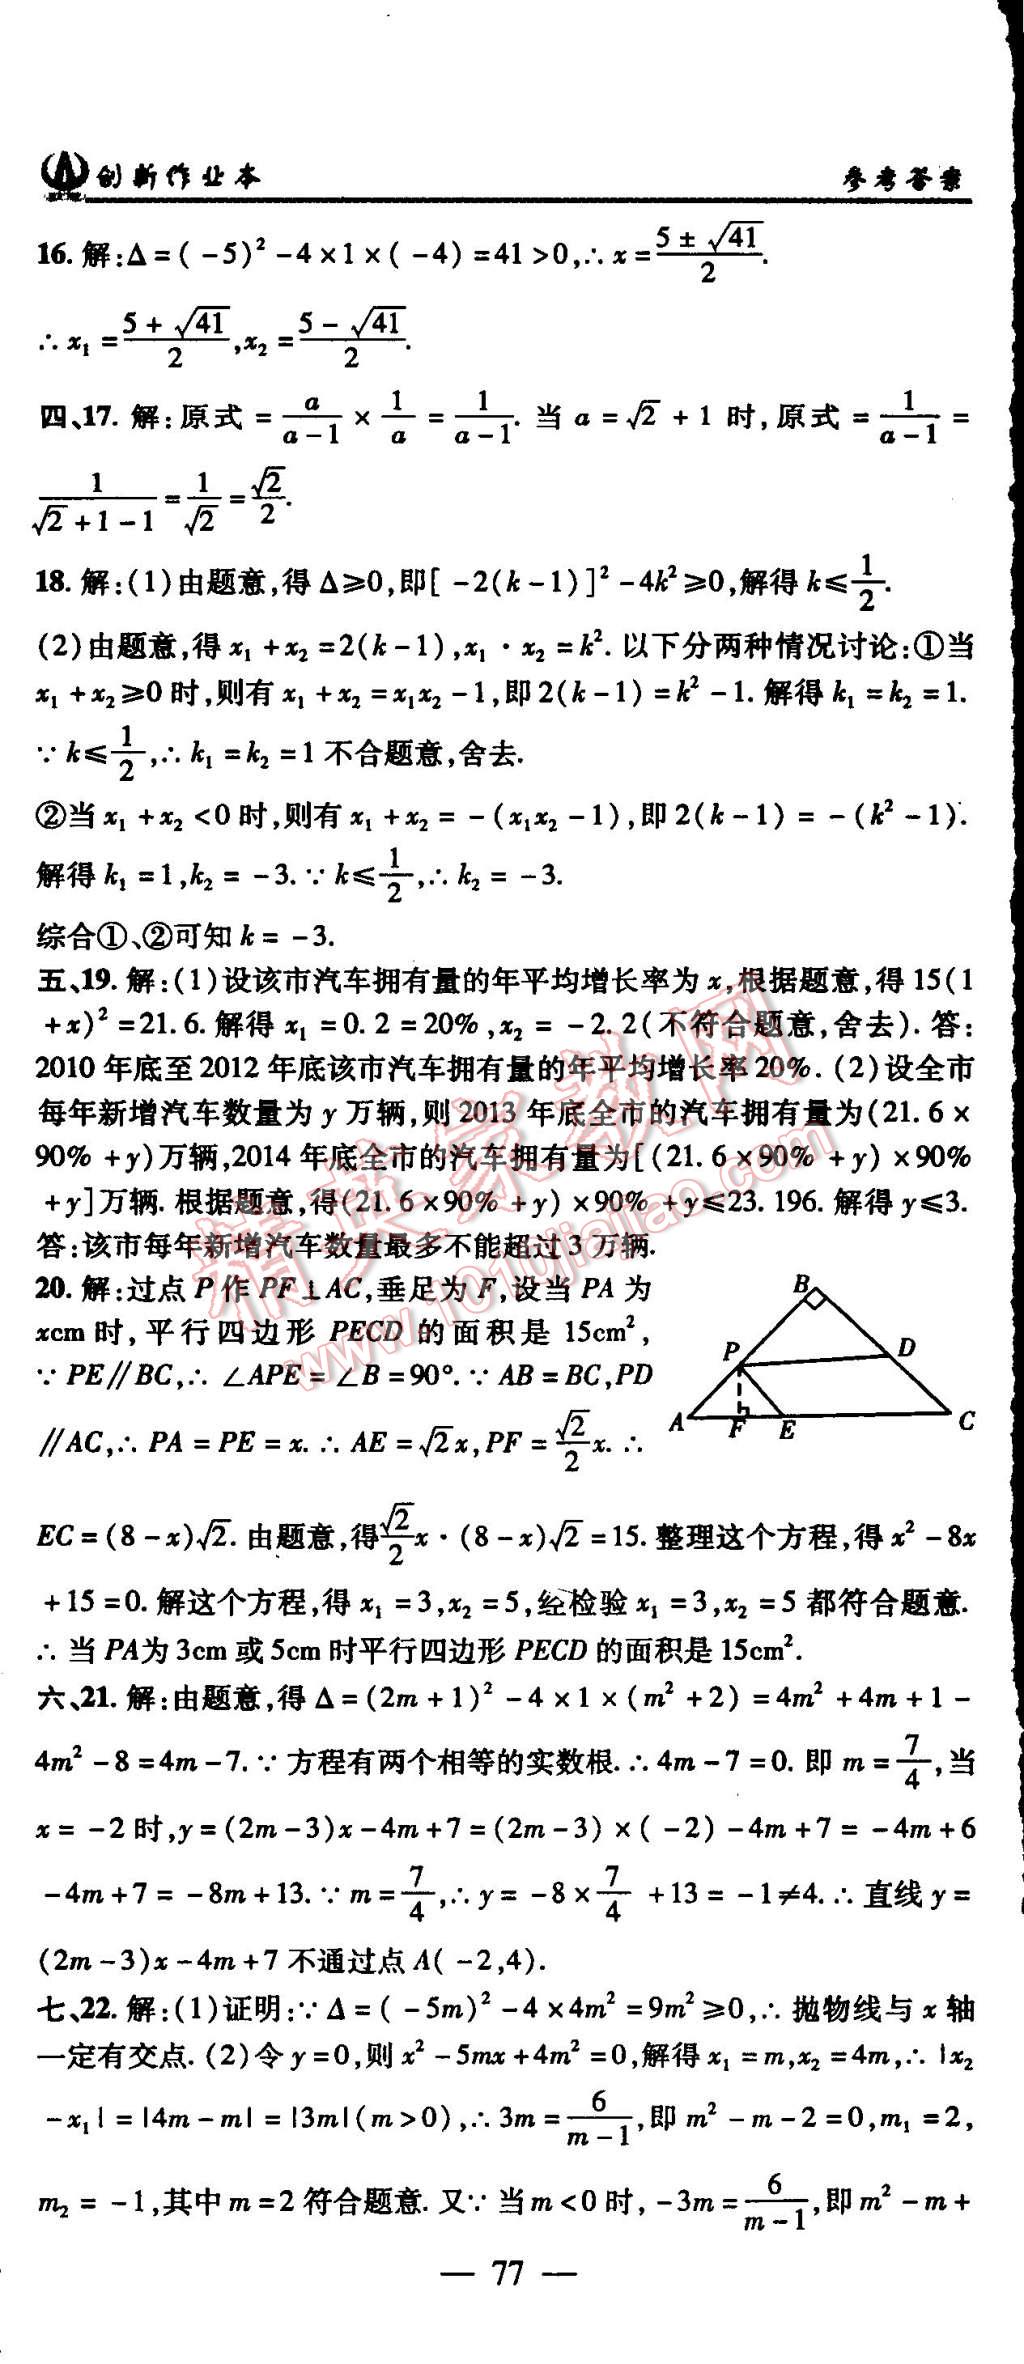 创新作业本 参考答案
16. 解:Δ=(-5)²-4×1×(-4)=41>0,∴x=\frac{5±√41}{2}.
∴x₁=\frac{5+√41}{2},x₂=\frac{5-√41}{2}.
四、17. 解:原式=\frac{a}{a-1}×\frac{1}{a}=\frac{1}{a-1}. 当 a=√2+1 时,原式=\frac{1}{a-1}=
\frac{1}{√2+1-1}=\frac{1}{√2}=\frac{√2}{2}.
18. 解:(1)由题意,得Δ≥0,即[-2(k-1)]²-4k²≥0,解得k≤\frac{1}{2}.
(2)由题意,得x₁+x₂=2(k-1),x₁·x₂=k². 以下分两种情况讨论:①当
x₁+x₂≥0时,则有x₁+x₂=x₁x₂-1,即2(k-1)=k²-1. 解得k₁=k₂=1.
∵k≤\frac{1}{2},∴k₁=k₂=1不合题意,舍去.
②当x₁+x₂<0时,则有x₁+x₂=-(x₁x₂-1),即2(k-1)=-(k²-1).
解得k₁=1,k₂=-3.∵k≤\frac{1}{2},∴k₂=-3.
综合①、②可知k=-3.
五、19. 解:(1)设该市汽车拥有量的年平均增长率为x,根据题意,得15(1
+x)²=21.6. 解得x₁=0.2=20%,x₂=-2.2(不符合题意,舍去). 答:
2010年底至2012年底该市汽车拥有量的年平均增长率20%. (2)设全市
每年新增汽车数量为y万辆,则2013年底全市的汽车拥有量为(21.6×
90%+y)万辆,2014年底全市的汽车拥有量为[(21.6×90%+y)×90%
+y]万辆. 根据题意,得(21.6×90%+y)×90%+y≤23.196. 解得y≤3.
答:该市每年新增汽车数量最多不能超过3万辆.
20. 解:过点P作PF⊥AC,垂足为F,设当PA为
xcm时,平行四边形PECD的面积是15cm²,
∵PE∥BC,∴∠APE=∠B=90°.∵AB=BC,PD
∥AC,∴PA=PE=x.∴AE=√2x,PF=\frac{√2}{2}x.∴
B
P
D
A
F
E
C
EC=(8-x)√2. 由题意,得\frac{√2}{2}x·(8-x)√2=15. 整理这个方程,得x²-8x
+15=0. 解这个方程,得x₁=3,x₂=5,经检验x₁=3,x₂=5都符合题意.
∴当PA为3cm或5cm时平行四边形PECD的面积是15cm².
六、21. 解:由题意,得Δ=(2m+1)²-4×1×(m²+2)=4m²+4m+1-
4m²-8=4m-7.∵方程有两个相等的实数根.∴4m-7=0. 即m=\frac{7}{4},当
x=-2时,y=(2m-3)x-4m+7=(2m-3)×(-2)-4m+7=-4m+6
-4m+7=-8m+13.∵m=\frac{7}{4},∴y=-8×\frac{7}{4}+13=-1≠4.∴直线y=
(2m-3)x-4m+7不通过点A(-2,4).
七、22. 解:(1)证明:∵Δ=(-5m)²-4×4m²=9m²≥0,∴抛物线与x轴
一定有交点. (2)令y=0,则x²-5mx+4m²=0,解得x₁=m,x₂=4m,∴|x₂
-x₁|=|4m-m|=|3m|(m>0),∴3m=\frac{6}{m-1},即m²-m-2=0,m₁=2,
m₂=-1,其中m=2符合题意. 又∵当m<0时,-3m=\frac{6}{m-1},即m²-m+
精英家教网
www.1010jiajiao.com
— 77 —